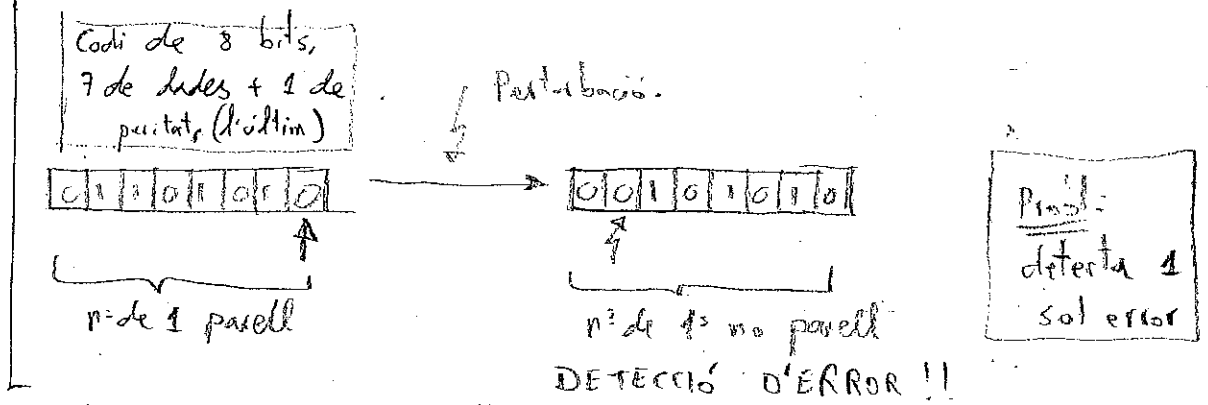 Codi de 8 bits,
7 de dades + 1 de
paritat, (l'últim)
Perturbació.
0 1 1 0 1 0 1 0
0 0 1 0 1 0 1 0
nº de 1 parell
nº de 1s no parell
DETECCIÓ D'ERROR !!
Probl:
detecta 1
sol error